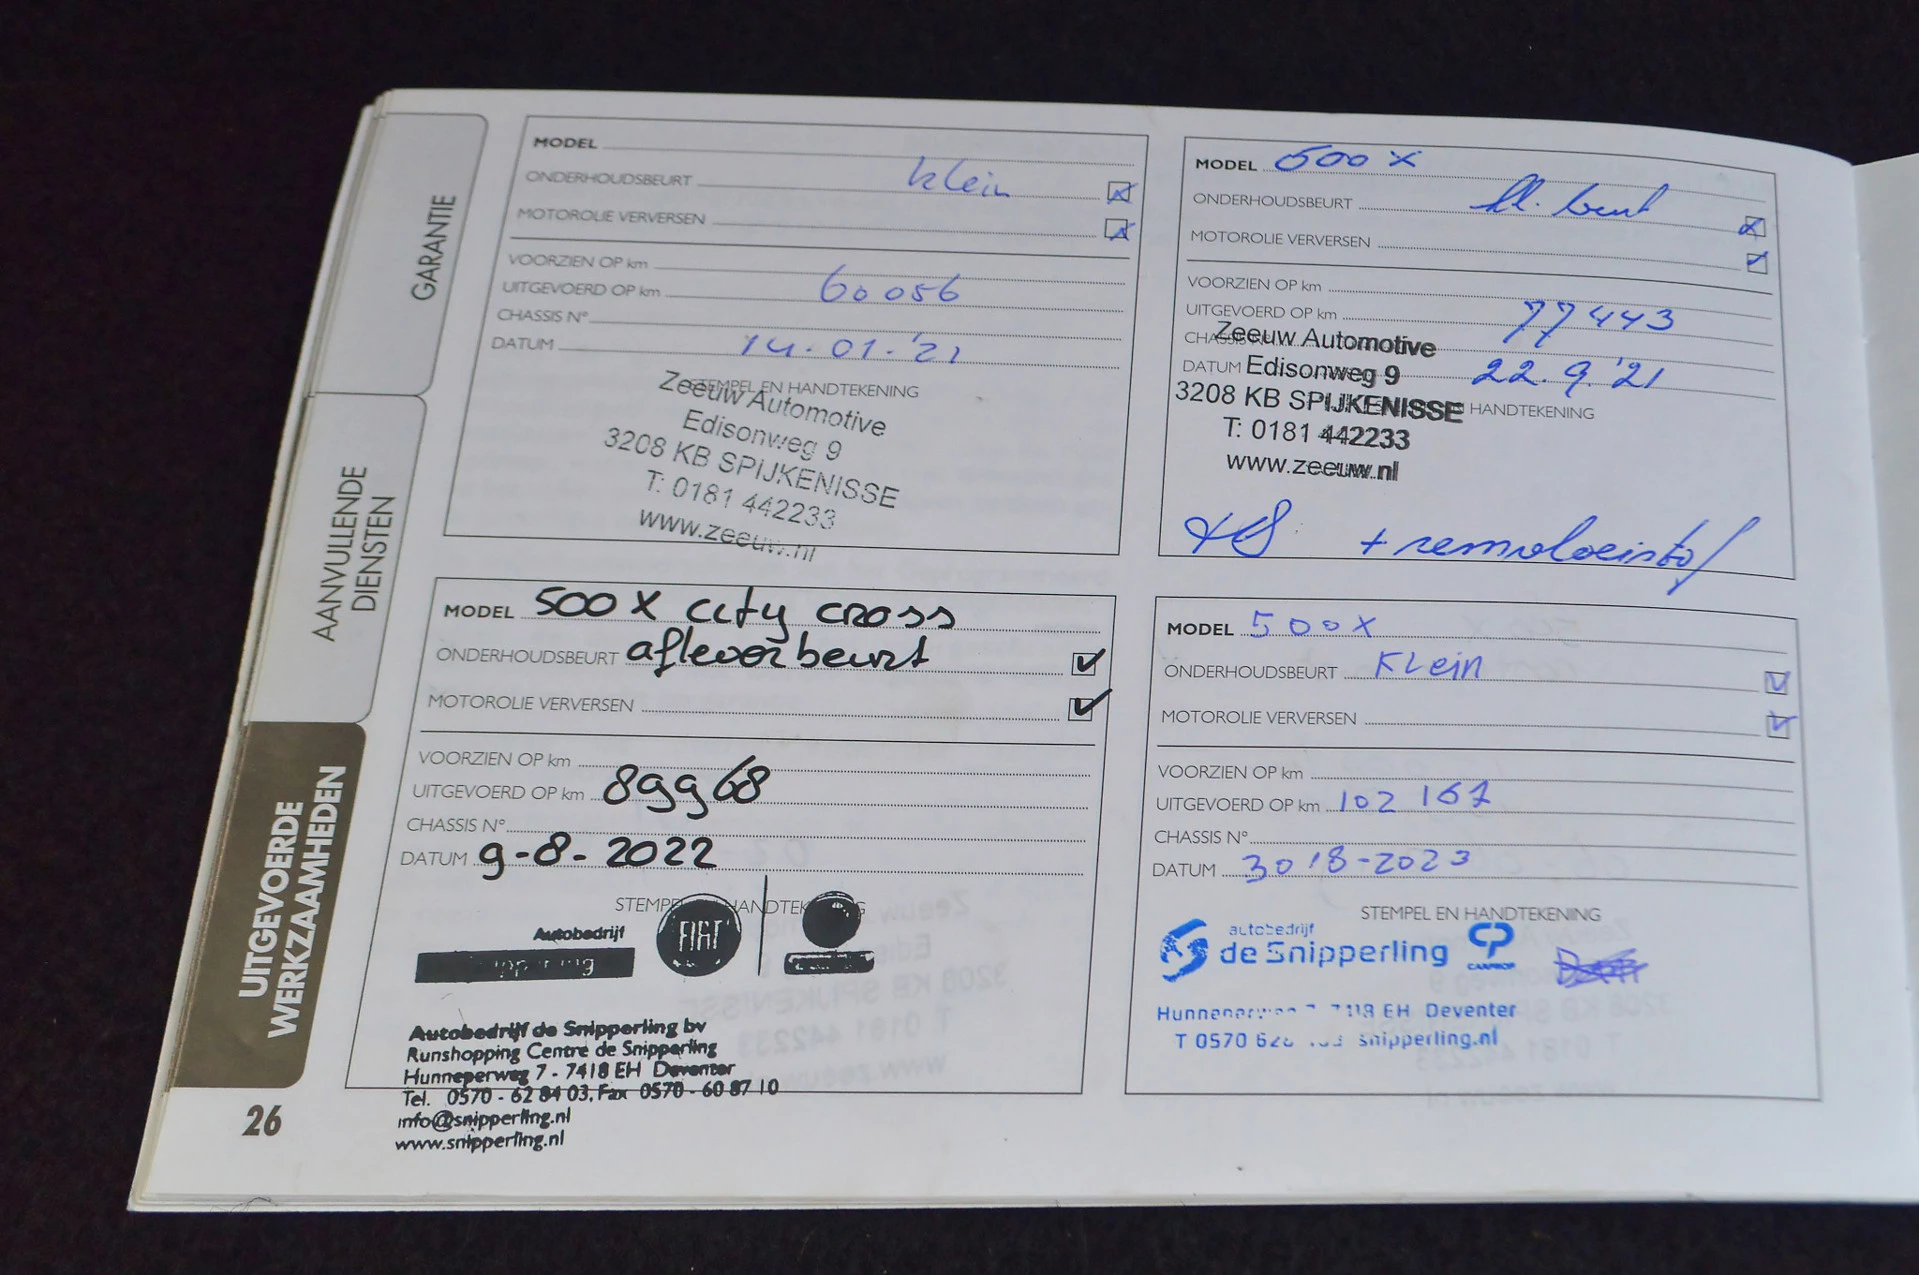 GARANTIE
AANVULLENDE
DIENSTEN
UITGEVOERDE
WERKZAAMHEDEN
26
MODEL
ONDERHOUDSBEURT klein
MOTOROLIE VERVERSEN
VOORZIEN OP km
UITGEVOERD OP km 60056
CHASSIS N°
DATUM 14-01-'21
STEMPEL EN HANDTEKENING
Zeeuw Automotive
Edisonweg 9
3208 KB SPIJKENISSE
T: 0181 442233
www.zeeuw.nl
MODEL 500 X
ONDERHOUDSBEURT kl. beurt
MOTOROLIE VERVERSEN
VOORZIEN OP km
UITGEVOERD OP km 77443
CHASSIS
Zeeuw Automotive
DATUM 22.9.'21
Edisonweg 9
3208 KB SPIJKENISSE
HANDTEKENING
T: 0181 442233
www.zeeuw.nl
+ remvloeistof
MODEL 500 X city cross
ONDERHOUDSBEURT afleverbeurt
MOTOROLIE VERVERSEN
VOORZIEN OP km
UITGEVOERD OP km 89968
CHASSIS N°
DATUM 9-8-2022
STEMPEL HANDTEKENING
Autobedrijf
FIAT
Autobedrijf de Snipperling bv
Runshopping Centre de Snipperling
Hunneperweg 7 - 7418 EH Deventer
Tel. 0570 - 62 84 03, Fax 0570 - 60 87 10
info@snipperling.nl
www.snipperling.nl
MODEL 500X
ONDERHOUDSBEURT Klein
MOTOROLIE VERVERSEN
VOORZIEN OP km
UITGEVOERD OP km 102 167
CHASSIS N°
DATUM 30-8-2023
STEMPEL EN HANDTEKENING
autobedrijf
de Snipperling
CP
CARPROF
7418 EH Deventer
T 0570 628 snipperling.nl